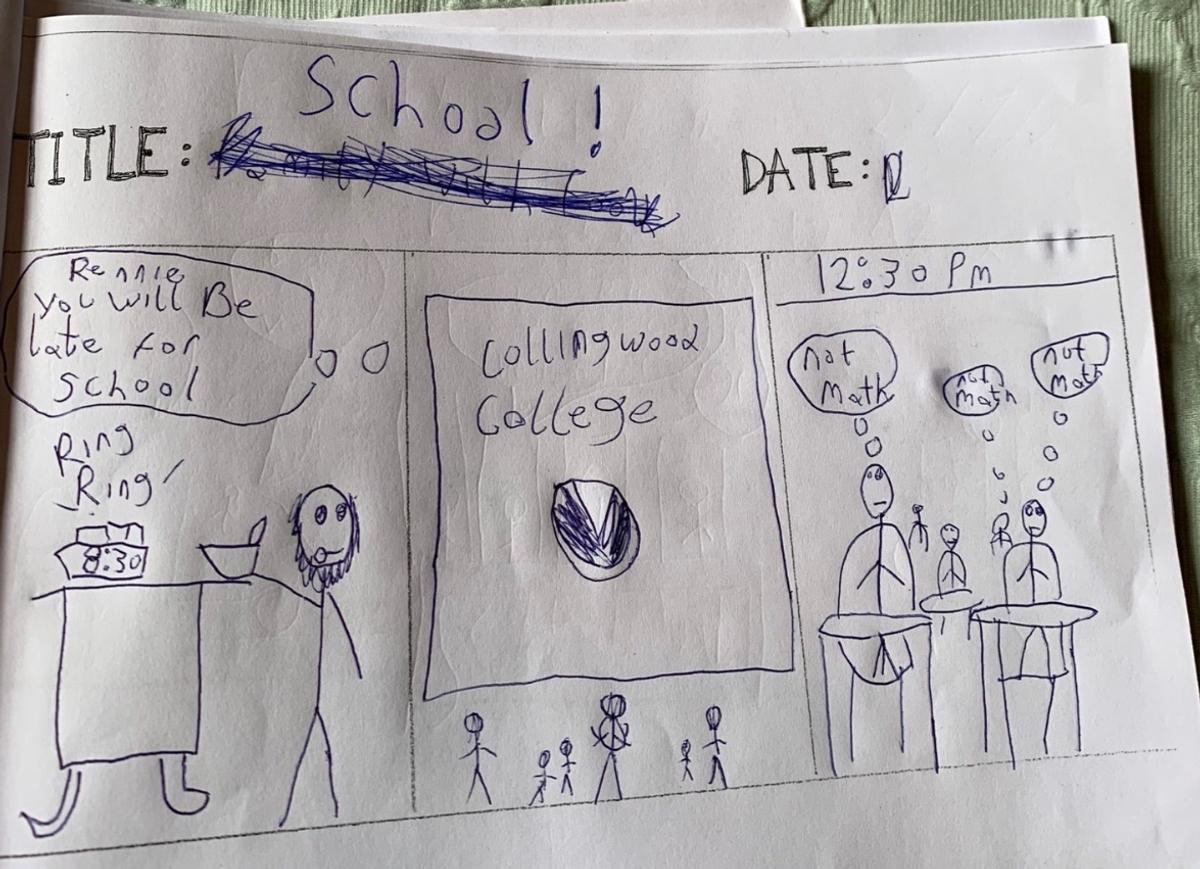 School!
TITLE:
DATE:
Rennie
you will Be
late for
School
Ring
Ring
8:30
Collingwood
College
12:30 Pm
not
math
not
math
not
math